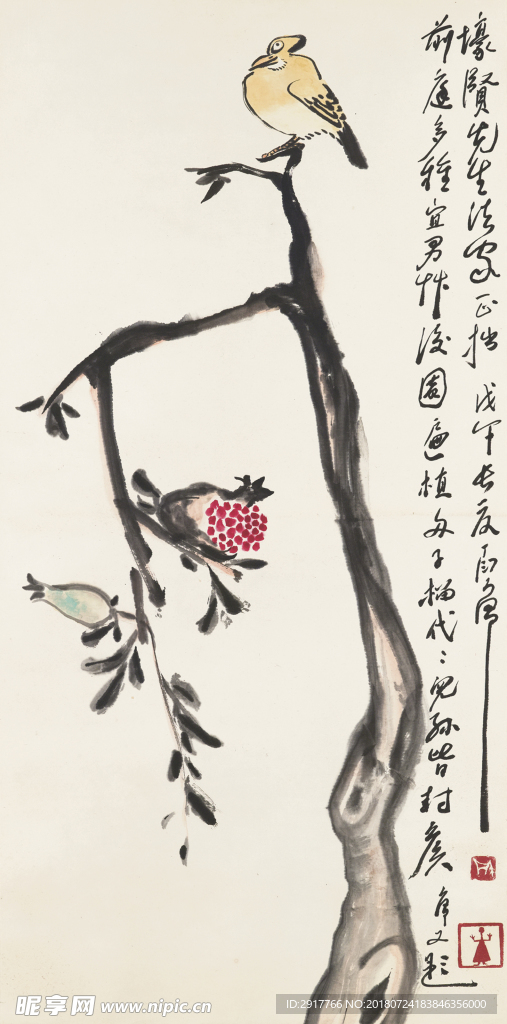 壕賢先生法家正拙 戊午長夏丁衍庸
前庭多種宜男艸後園遍植多子榴代〻兒孫皆封侯 庸又題
昵享网 www.nipic.cn
ID:2917766 NO:20180724183846356000